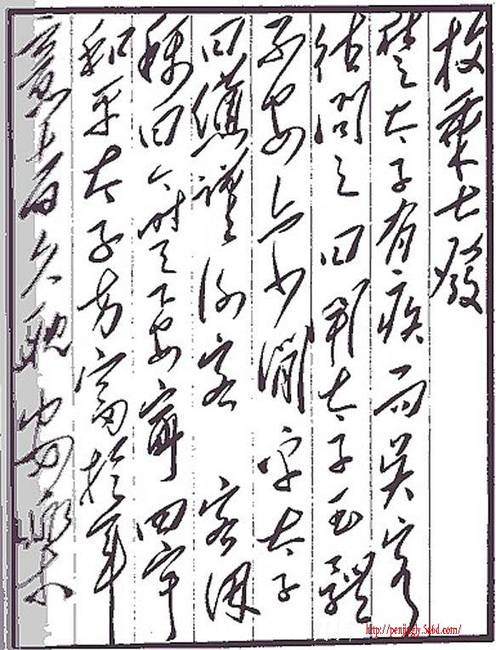 枚乘七發
楚太子有疾而吴客
往問之曰聞太子玉體
不安亦少間乎太子
曰憊謹謝客 客因
稱曰今時天下安寧四宇
和平太子方富於年
意者久耽安樂
http://penjingly.5d6d.com/